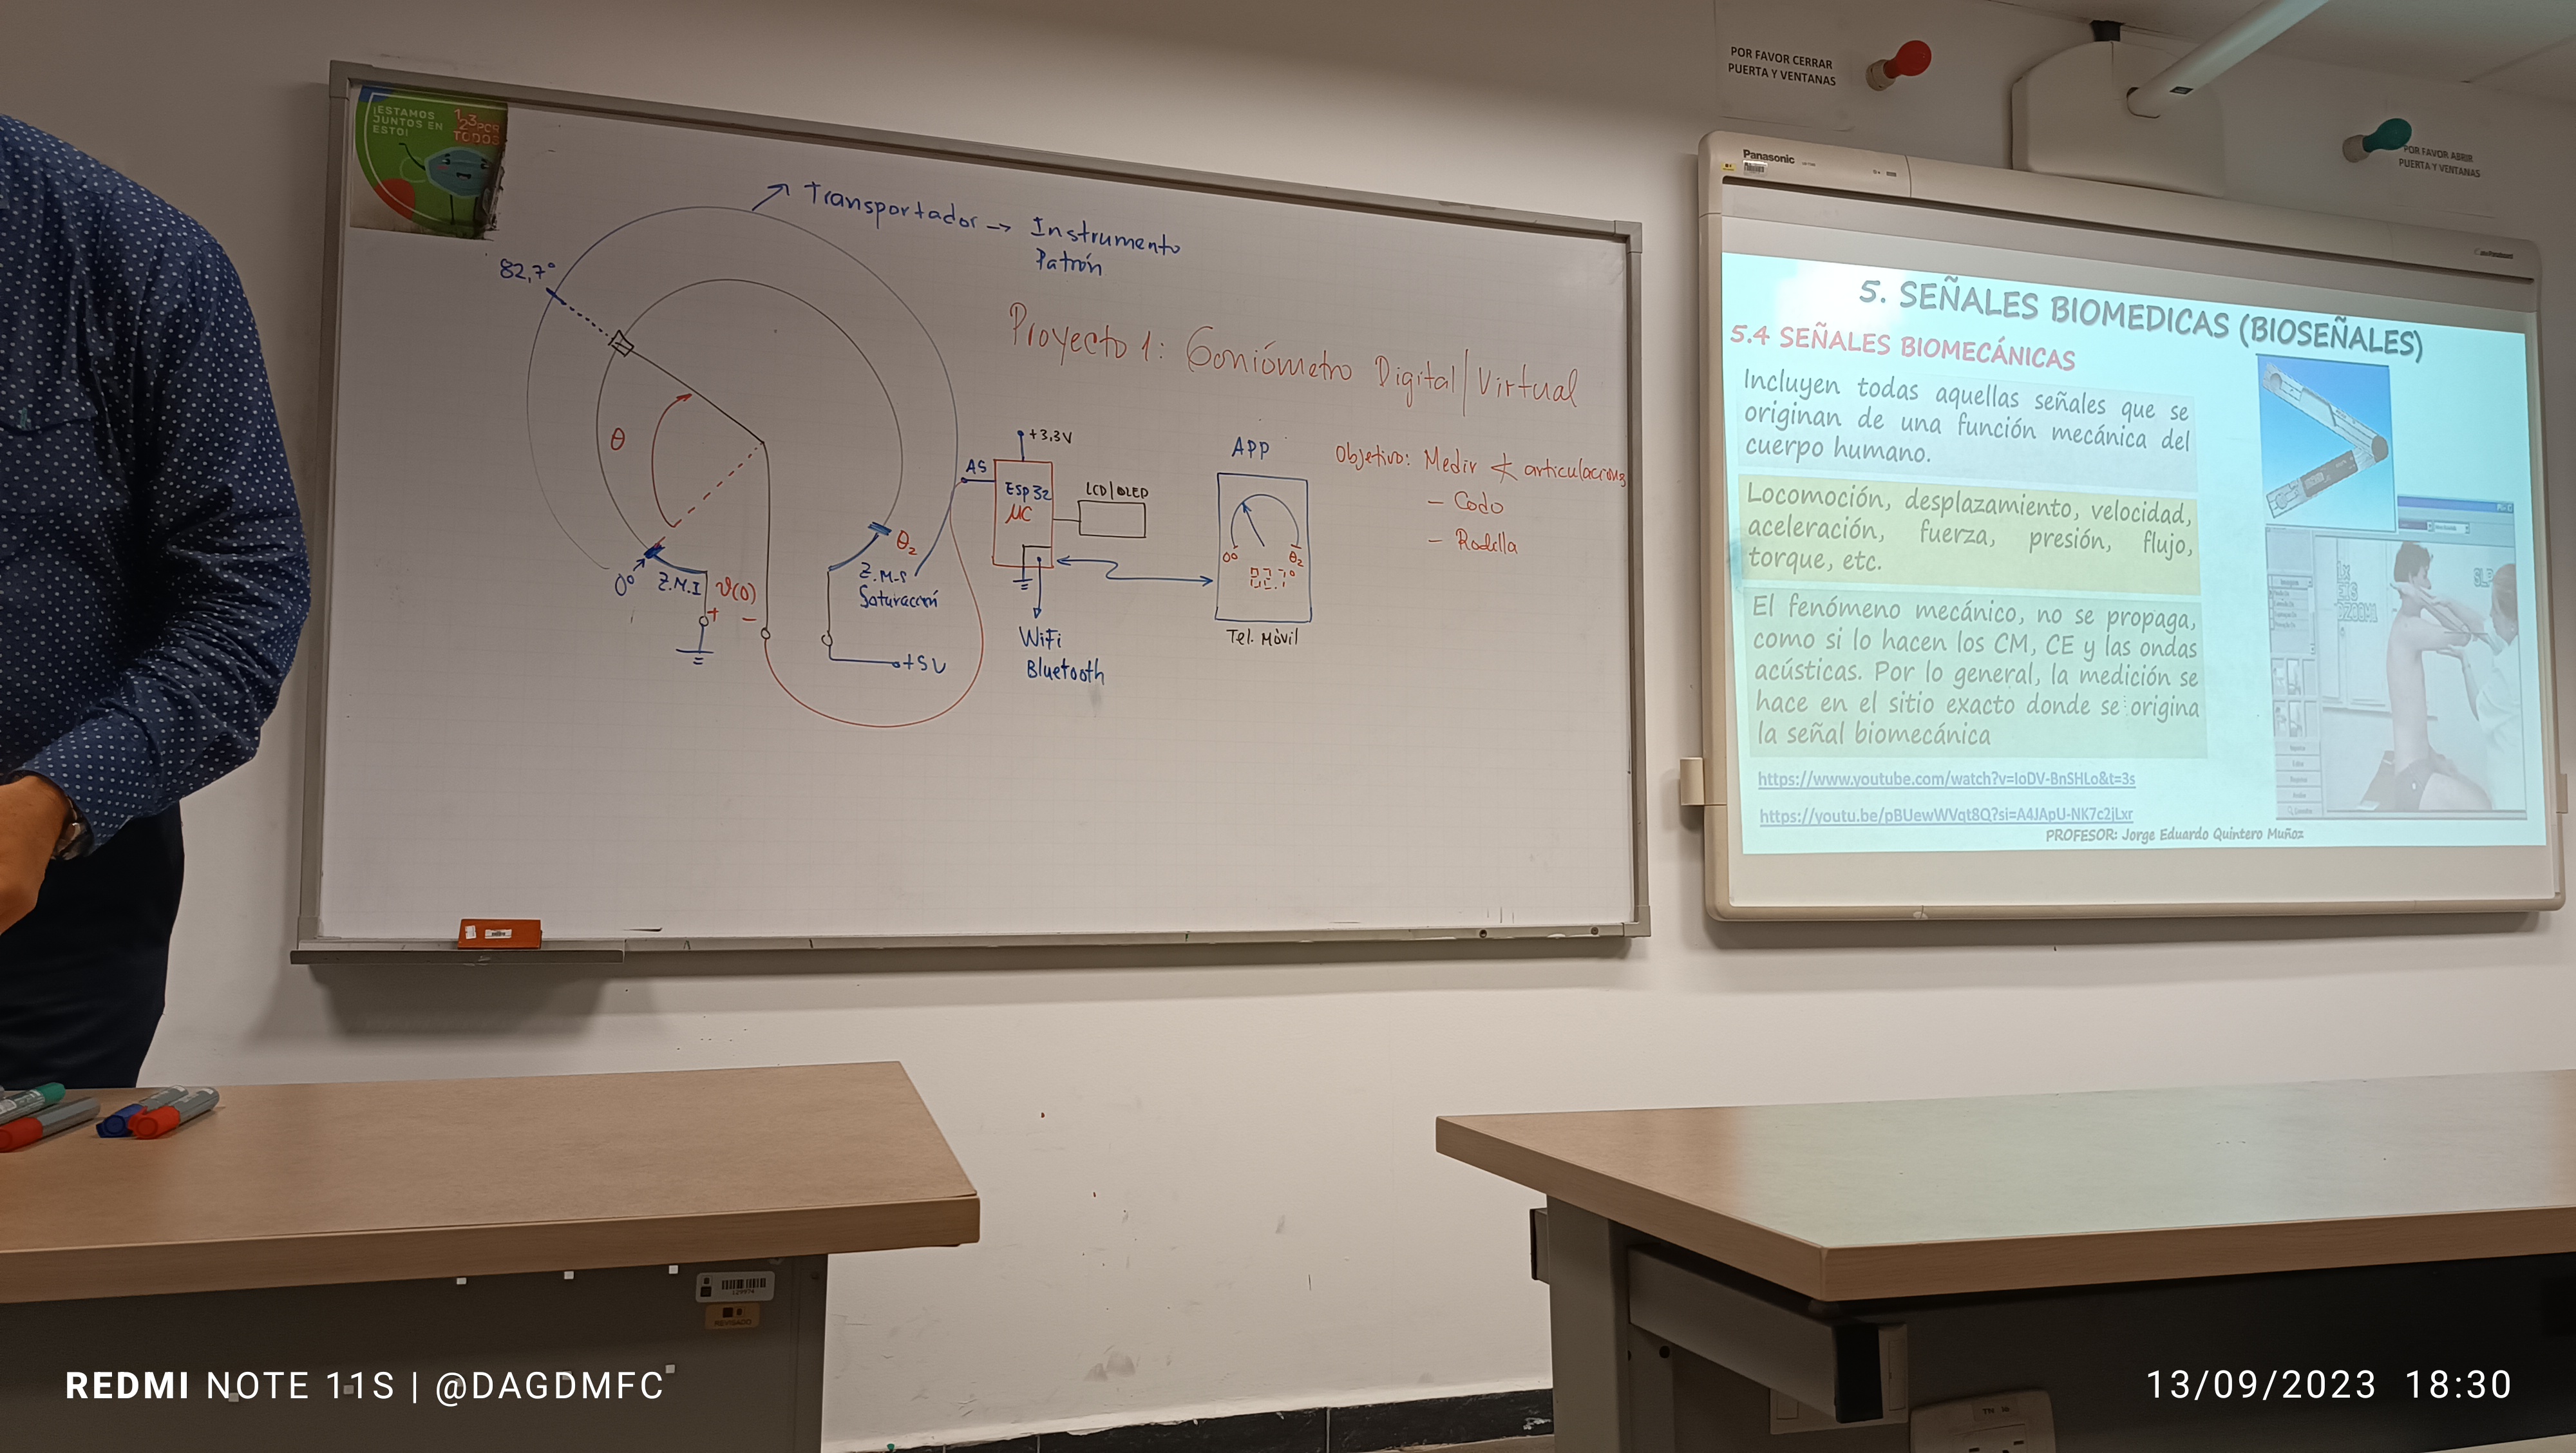 ¡ESTAMOS
JUNTOS EN
ESTO!
123 POR
TODOS
Transportador → Instrumento
Patrón
82,7°
Proyecto 1: Goniómetro Digital/Virtual
θ
0°
Z.M.I
+
-
θ2
Z.M.S
Saturación
+5V
A5
+3,3V
Esp32
μC
LCD/OLED
WiFi
Bluetooth
APP
0°
θ2
Tel. Móvil
Objetivo: Medir ∡ articulaciones
- Codo
- Rodilla
POR FAVOR CERRAR
PUERTA Y VENTANAS
POR FAVOR ABRIR
PUERTA Y VENTANAS
Panasonic
5. SEÑALES BIOMEDICAS (BIOSEÑALES)
5.4 SEÑALES BIOMECÁNICAS
Incluyen todas aquellas señales que se
originan de una función mecánica del
cuerpo humano.
Locomoción, desplazamiento, velocidad,
aceleración, fuerza, presión, flujo,
torque, etc.
El fenómeno mecánico, no se propaga,
como si lo hacen los CM, CE y las ondas
acústicas. Por lo general, la medición se
hace en el sitio exacto donde se origina
la señal biomecánica
https://www.youtube.com/watch?v=IoDV-BnSHLo&t=3s
https://youtu.be/pBUewWVqt8Q?si=A4JApU-NK7c2jLxr
PROFESOR: Jorge Eduardo Quintero Muñoz
REVISADO
REDMI NOTE 11S | @DAGDMFC
13/09/2023 18:30